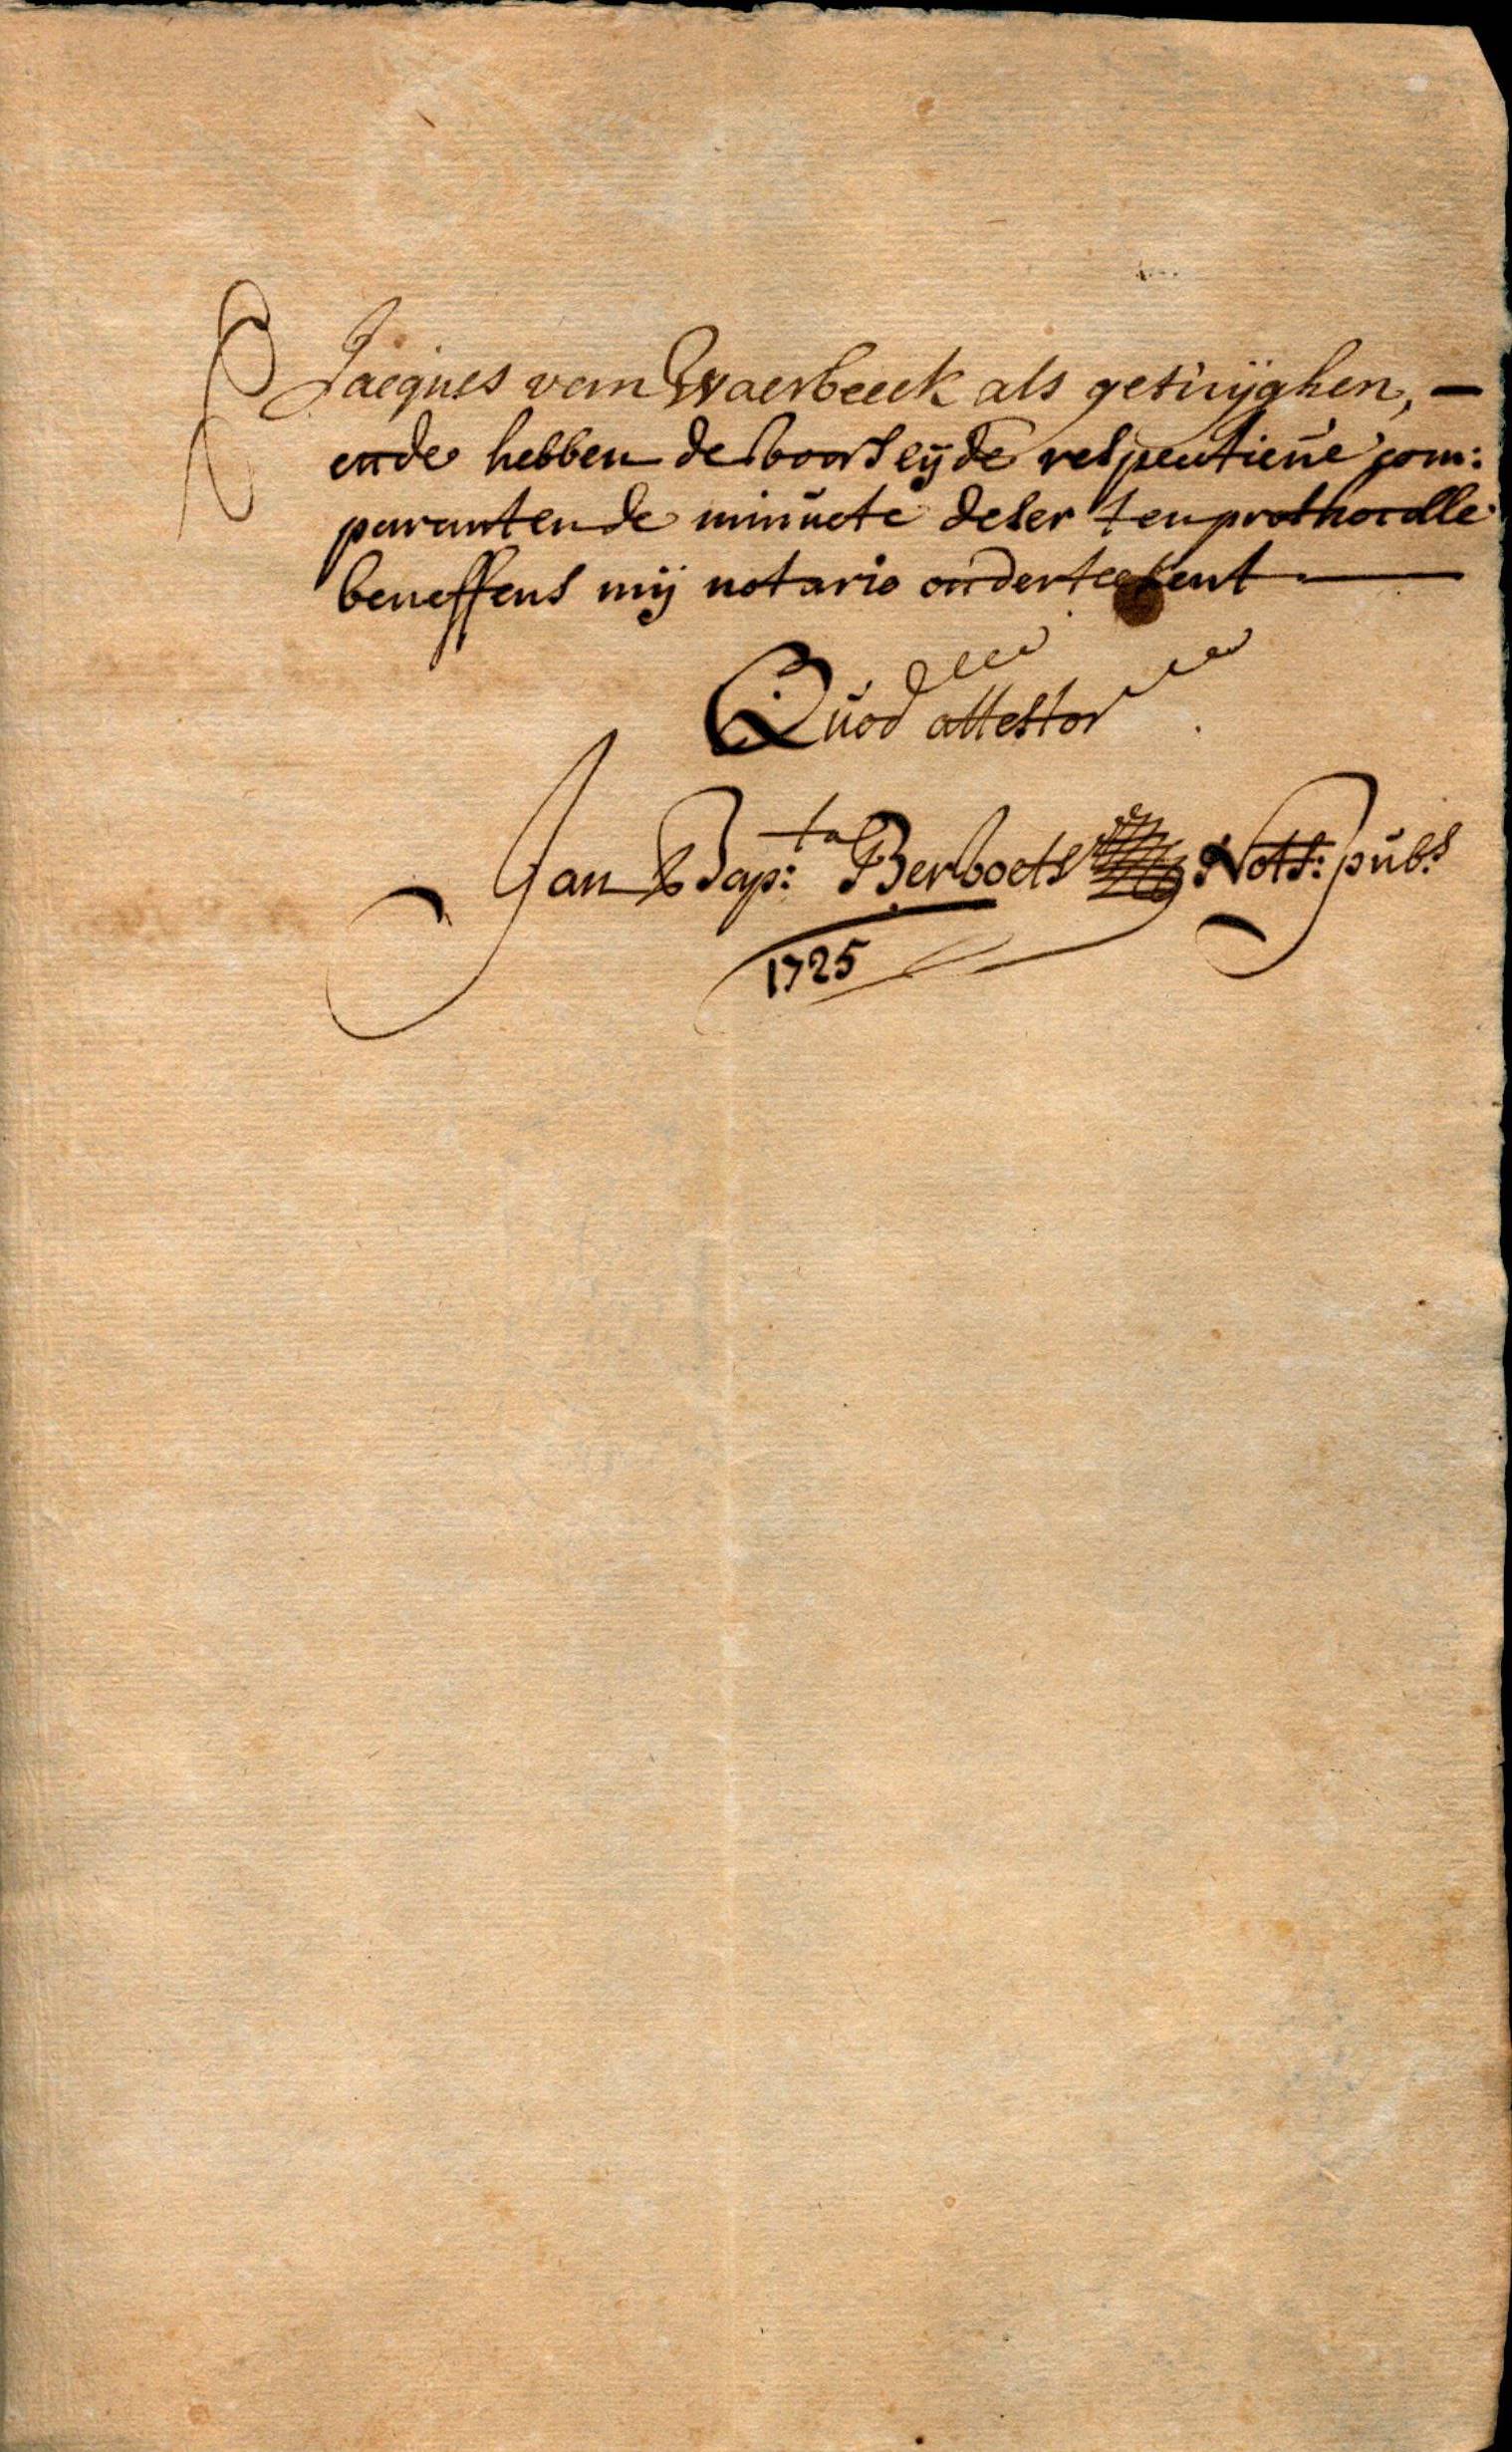 Jacques van Waerbeeck als getuijghen, —
ende hebben de voorseijde respectieve com:
paranten de minute deser ten prothocolle
beneffens mij notario onderteekent —
Quod attestor
Jan Bap:ta Berboets Nots: pub:s
1725